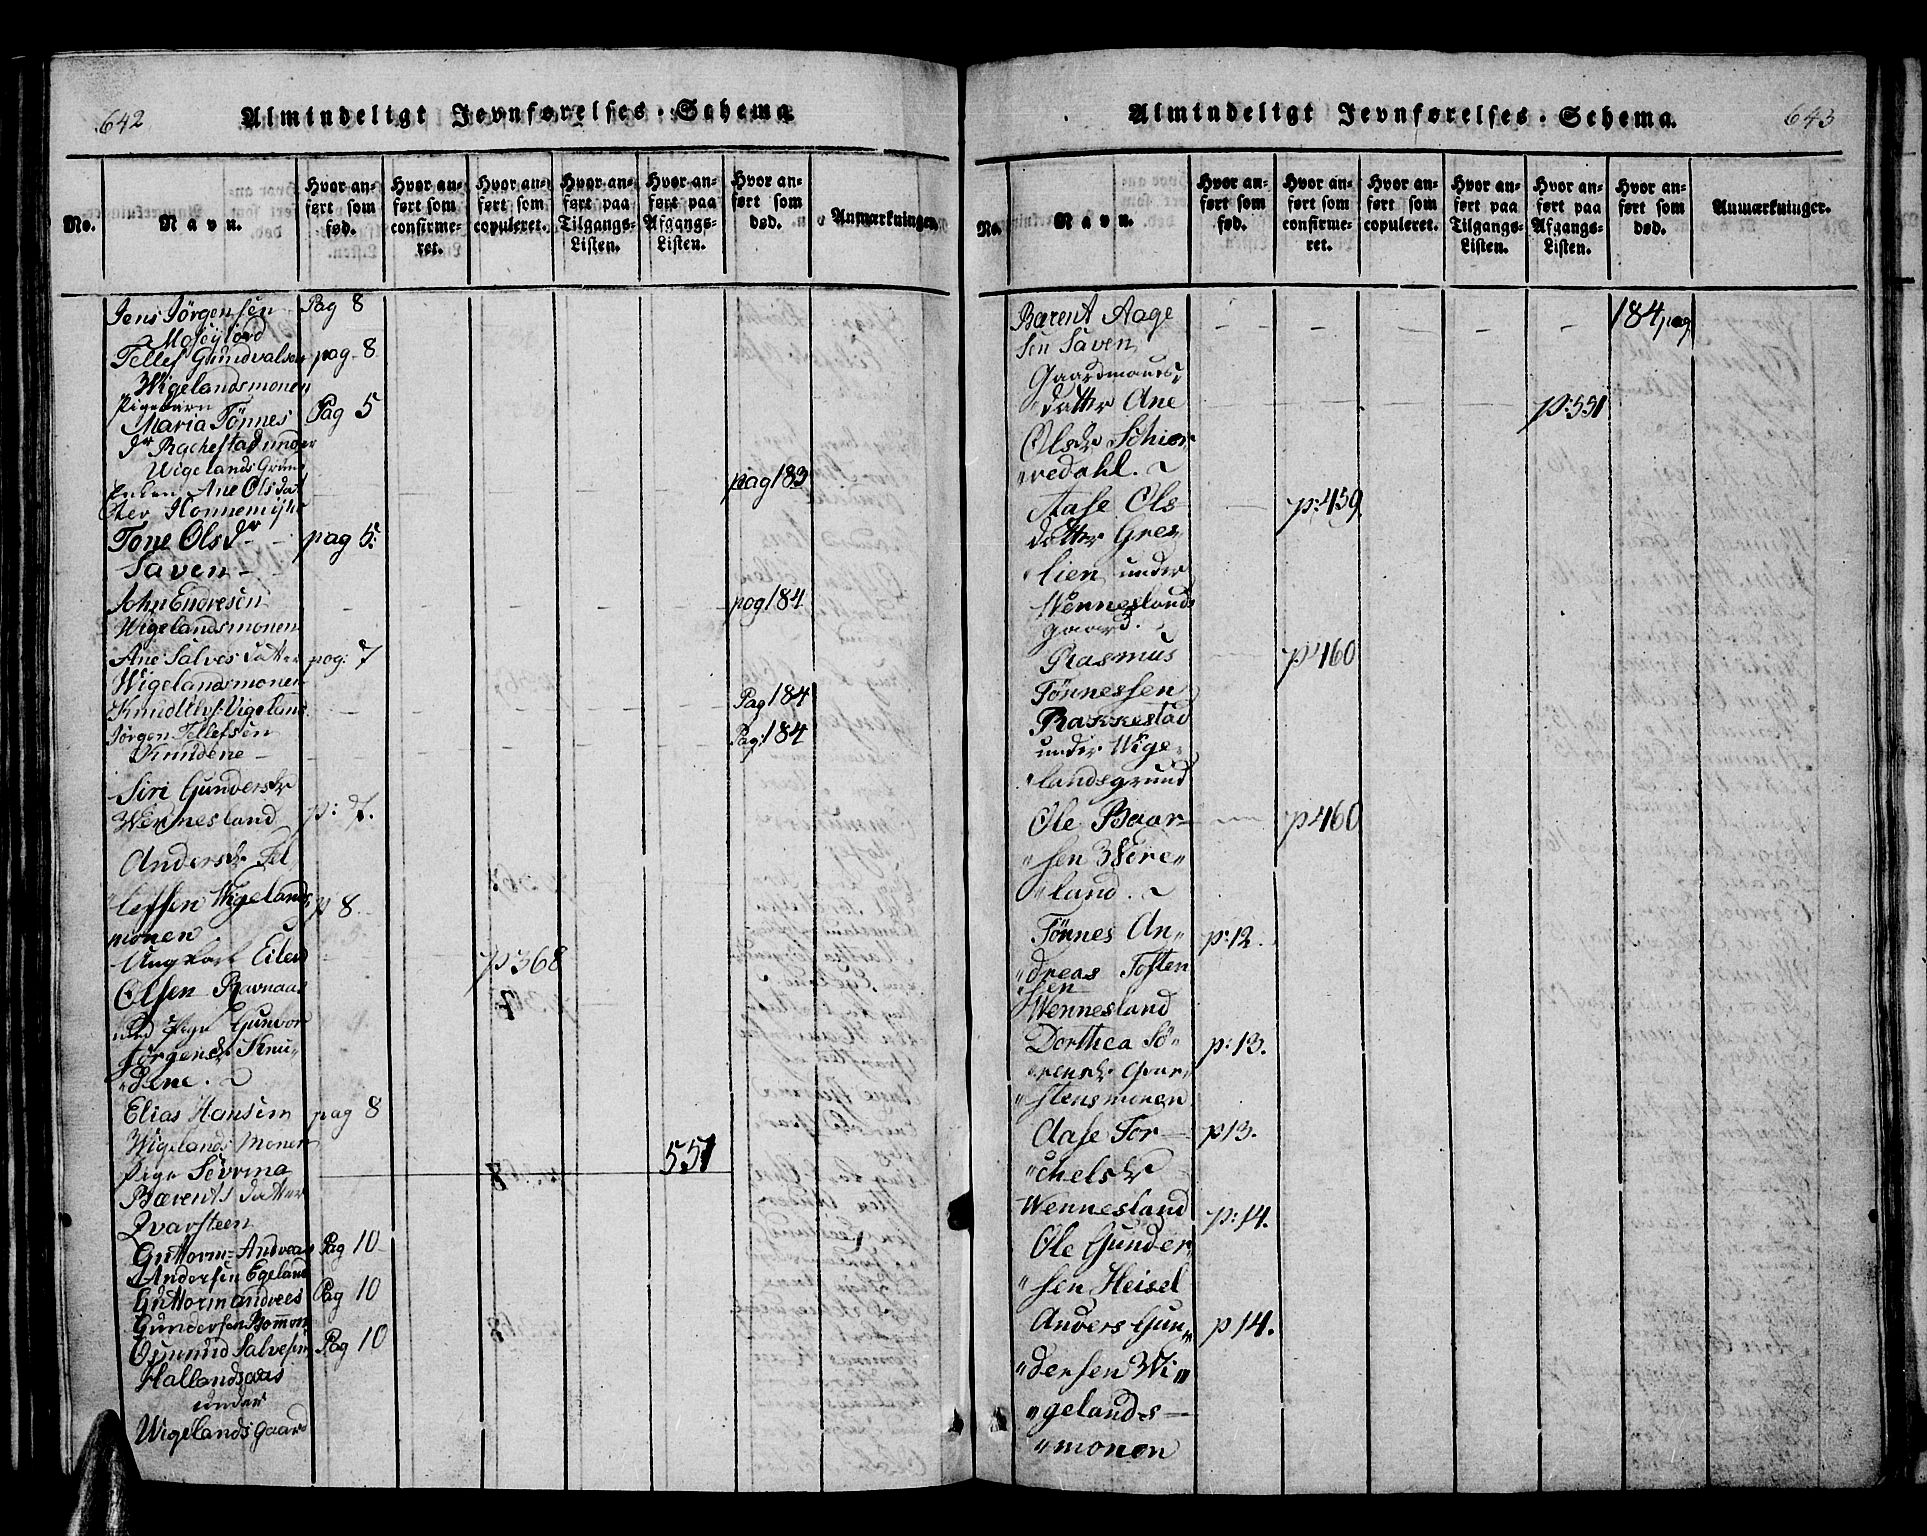 642
Almindeligt Jevnførelses-Schema.
No.
Navn.
Hvor anført som fød.
Hvor anført som confirmeret.
Hvor anført som copuleret.
Hvor anført paa Tilgangs-Listen.
Hvor anført paa Afgangs-Listen.
Hvor anført som død.
Anmærkninger.
Jens Jörgensen Pag 8
Mosefiord
Tellef Gundvalsen pag. 8
Wigelandsmonen
Pigebarn
Maria Tönnes Pag 5
dr Rachestad under
Wigelands Grund
Enken Ane Olsdat
ter Honnemyhr pag 183
Tone Olsdr pag 5:
Saven
John Endresen pag 184
Wigelandsmonen
Ane Salvesdatter pag: 7
Wigelandsmonen
Knud Vigeland Pag 184
Jörgen Tellefsen Pag: 184
Knudene
Siri Gundersdr
Wennesland p: 7.
Anders Tel
lefsen Wigelands p 8
monen
Ungkarl Eilert p: 368
Olsen Ravnaas
med Pige Gunvor
Jörgensdr Knu-
"dene.
Elias Hansen pag 8
Wigelands Monen
Pige Severina 551
Bærents datter
Qvarsteen
Guttorm Andreas Pag 10
Andersen Egeland
Guttorm Andrees Pag 10
Gundersen Bommen
Osmund Salvesen Pag 10
Hallandsaas
under
Wigelands Gaard
643
Almindeligt Jevnførelses-Schema.
No.
Navn.
Hvor anført som fød.
Hvor anført som confirmeret.
Hvor anført som copuleret.
Hvor anført paa Tilgangs-Listen.
Hvor anført paa Afgangs-Listen.
Hvor anført som død.
Anmærkninger.
Bærent Aage 184 pag
sen Saven
Gaardmands
datter Ane p: 551
Olsdr Schier
"vedahl.
Aase Ols p: 459
datter Gres
lien under
Wenneslands
gaard.
Rasmus p 460
Tönnessen
Rakkestad
under Wige
landsgrund
Ole Baar- p 460
"sen Were"
"land.
Tönnes An" p: 12.
"dreas Tosten
"sen
Wennesland
Dorthea Sö" p: 13.
"rensdr Qvar
"stensmonen
Aase Tor- p 13.
"chelsdr
Wennesland
Ole Gunder p: 14.
"sen Heisel
Anders Gun" p 14.
"dersen Wi"
"gelands-
"monen